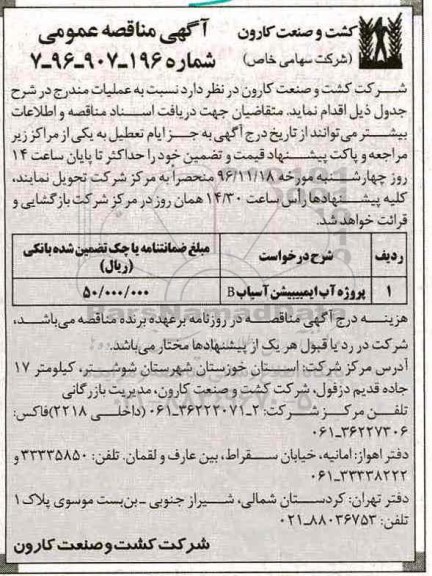 کشت و صنعت کارون
(شرکت سهامی خاص)
آگهی مناقصه عمومی
شماره ۱۹۶-۹۰۷-۹۶-۷
شرکت کشت و صنعت کارون در نظر دارد نسبت به عملیات مندرج در شرح
جدول ذیل اقدام نماید. متقاضیان جهت دریافت اسناد مناقصه و اطلاعات
بیشتر می‌توانند از تاریخ درج آگهی به جز ایام تعطیل به یکی از مراکز زیر
مراجعه و پاکت پیشنهاد قیمت و تضمین خود را حداکثر تا پایان ساعت ۱۴
روز چهارشنبه مورخه ۹۶/۱۱/۱۸ منحصراً به مرکز شرکت تحویل نمایند،
کلیه پیشنهادها رأس ساعت ۱۴/۳۰ همان روز در مرکز شرکت بازگشایی و
قرائت خواهد شد.
ردیف شرح درخواست مبلغ ضمانتنامه یا چک تضمین شده بانکی
(ریال)
۱ پروژه آب ایمبیبیشن آسیاب B ۵۰/۰۰۰/۰۰۰
هزینه درج آگهی مناقصه در روزنامه بر عهده برنده مناقصه می‌باشد،
شرکت در رد یا قبول هر یک از پیشنهادها مختار می‌باشد.
آدرس مرکز شرکت: استان خوزستان شهرستان شوشتر، کیلومتر ۱۷
جاده قدیم دزفول، شرکت کشت و صنعت کارون، مدیریت بازرگانی
تلفن مرکز شرکت: ۲-۳۶۲۲۲۰۷۱-۰۶۱ (داخلی ۲۲۱۸) فاکس:
۰۶۱-۳۶۲۲۷۳۰۶
دفتر اهواز: امانیه، خیابان سقراط، بین عارف و لقمان. تلفن: ۳۳۳۳۵۸۵۰ و
۰۶۱-۳۳۳۳۸۲۲۲
دفتر تهران: کردستان شمالی، شیراز جنوبی - بن‌بست موسوی پلاک ۱
تلفن: ۰۲۱-۸۸۰۳۶۷۵۳
شرکت کشت و صنعت کارون